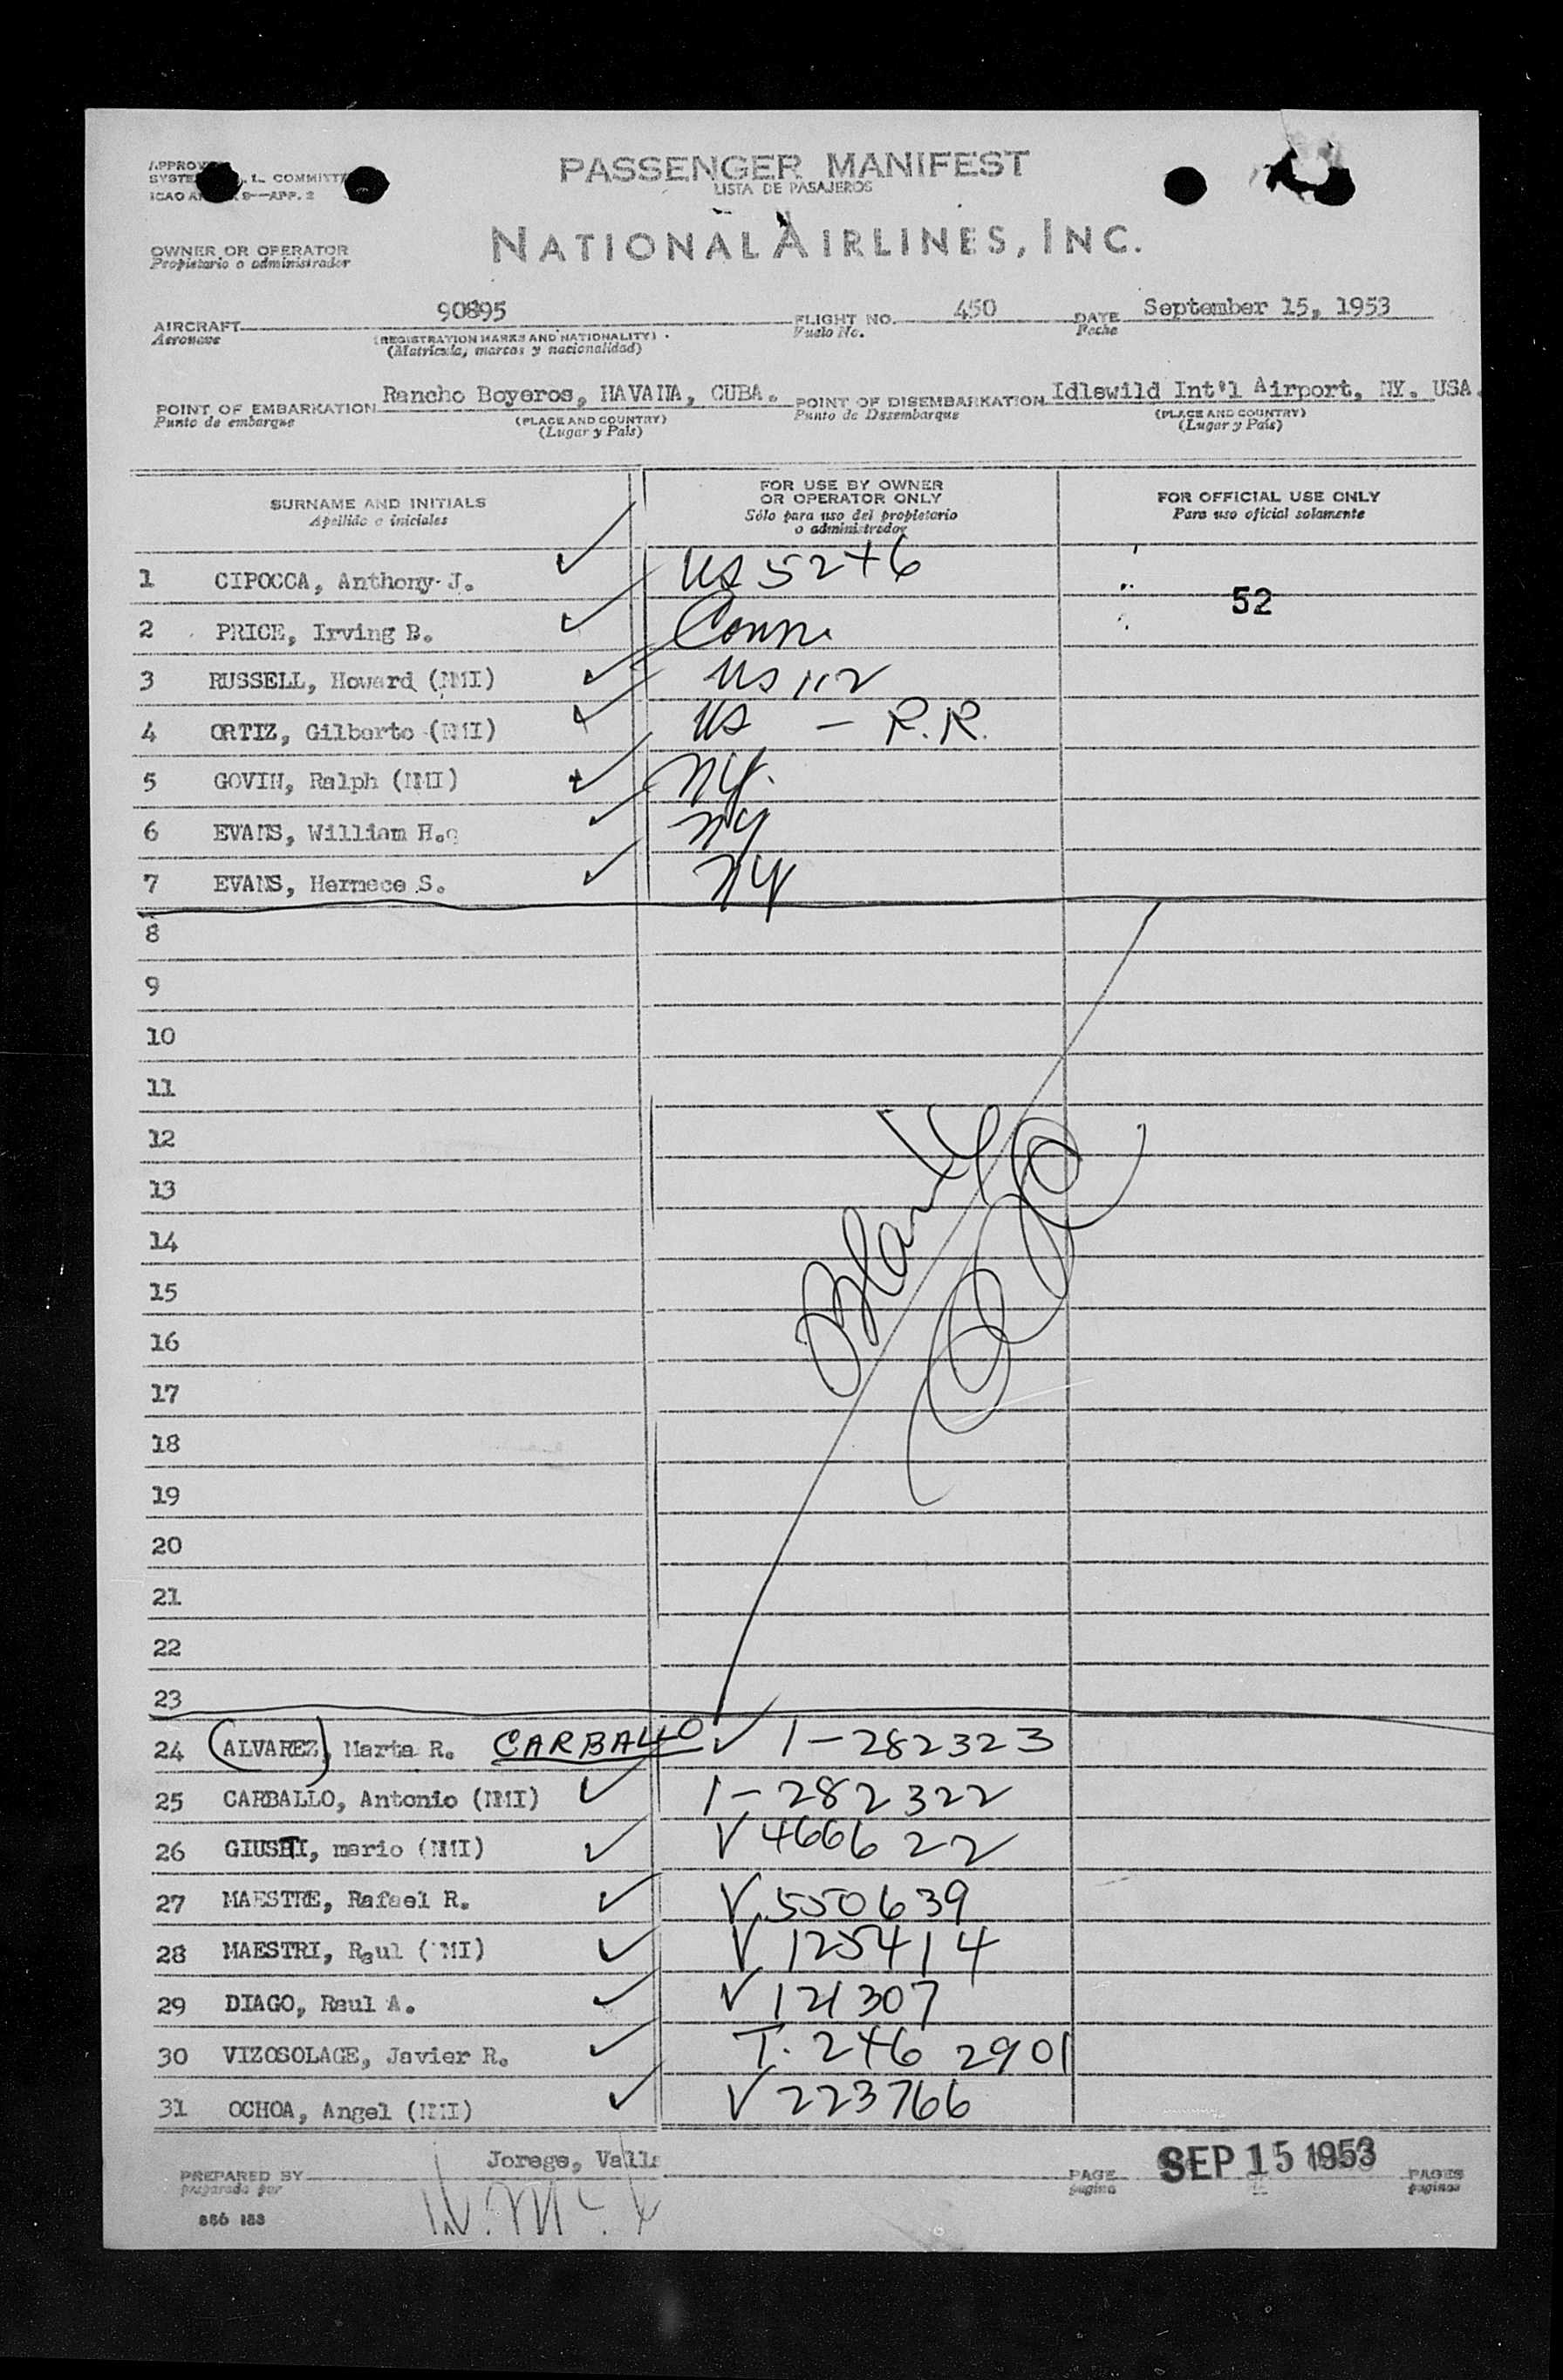 PASSENGER MANIFEST
LISTA DE PASAJEROS
NATIONAL AIRLINES, INC.
OWNER OR OPERATOR
Propietario o administrador
AIRCRAFT 90895 FLIGHT NO. 450 DATE September 15, 1953
Aeronave (REGISTRATION MARKS AND NATIONALITY) Vuelo No. Fecha
(Matricula, marcas y nacionalidad)
POINT OF EMBARKATION Rancho Boyeros, HAVANA, CUBA. POINT OF DISEMBARKATION Idlewild Int'l Airport, NY. USA.
Punto de embarque (PLACE AND COUNTRY) Punto de Desembarque (PLACE AND COUNTRY)
(Lugar y País) (Lugar y País)
SURNAME AND INITIALS FOR USE BY OWNER OR OPERATOR ONLY FOR OFFICIAL USE ONLY
Apellido e iniciales Sólo para uso del propietario o administrador Para uso oficial solamente
1 CIPOCCA, Anthony J. ✓ US 52+6
52
2 PRICE, Irving B. ✓ Conn.
3 RUSSELL, Howard (NMI) ✓ US 112
4 ORTIZ, Gilberto (NMI) ✓ US — R.R.
5 GOVIN, Ralph (NMI) ✓ NY.
6 EVANS, William H. ✓ NY
7 EVANS, Hermece S. ✓ NY
8
9
10
11
12
13
14
15
16
17
18
19
20
21
22
23
Blank
24 (ALVAREZ), Marta R. CARBALLO ✓ 1-282323
25 CARBALLO, Antonio (NMI) ✓ 1-282322
26 GIUSTI, mario (NMI) ✓ V 466622
27 MAESTRE, Rafael R. ✓ V 550639
28 MAESTRI, Raul (NMI) ✓ V 125414
29 DIAGO, Raul A. ✓ V 121307
30 VIZOSOLAGE, Javier R. ✓ T. 246 2901
31 OCHOA, Angel (NMI) ✓ V 223766
PREPARED BY Jorege, Valls PAGE SEP 15 1953 PAGES
preparado por pagina paginas